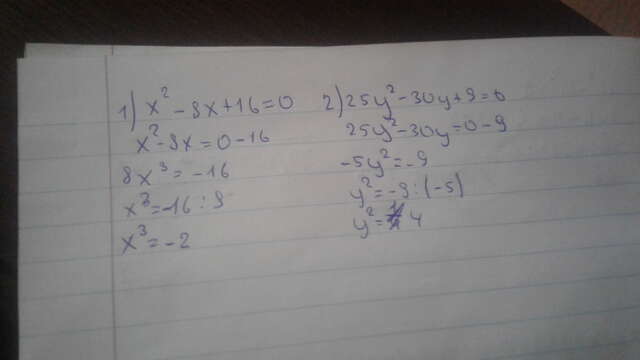 1) x² - 8x + 16 = 0
x² - 8x = 0 - 16
8x³ = -16
x³ = -16 : 8
x³ = -2
2) 25y² - 30y + 9 = 0
25y² - 30y = 0 - 9
-5y² = -9
y² = -9 : (-5)
y² = 4